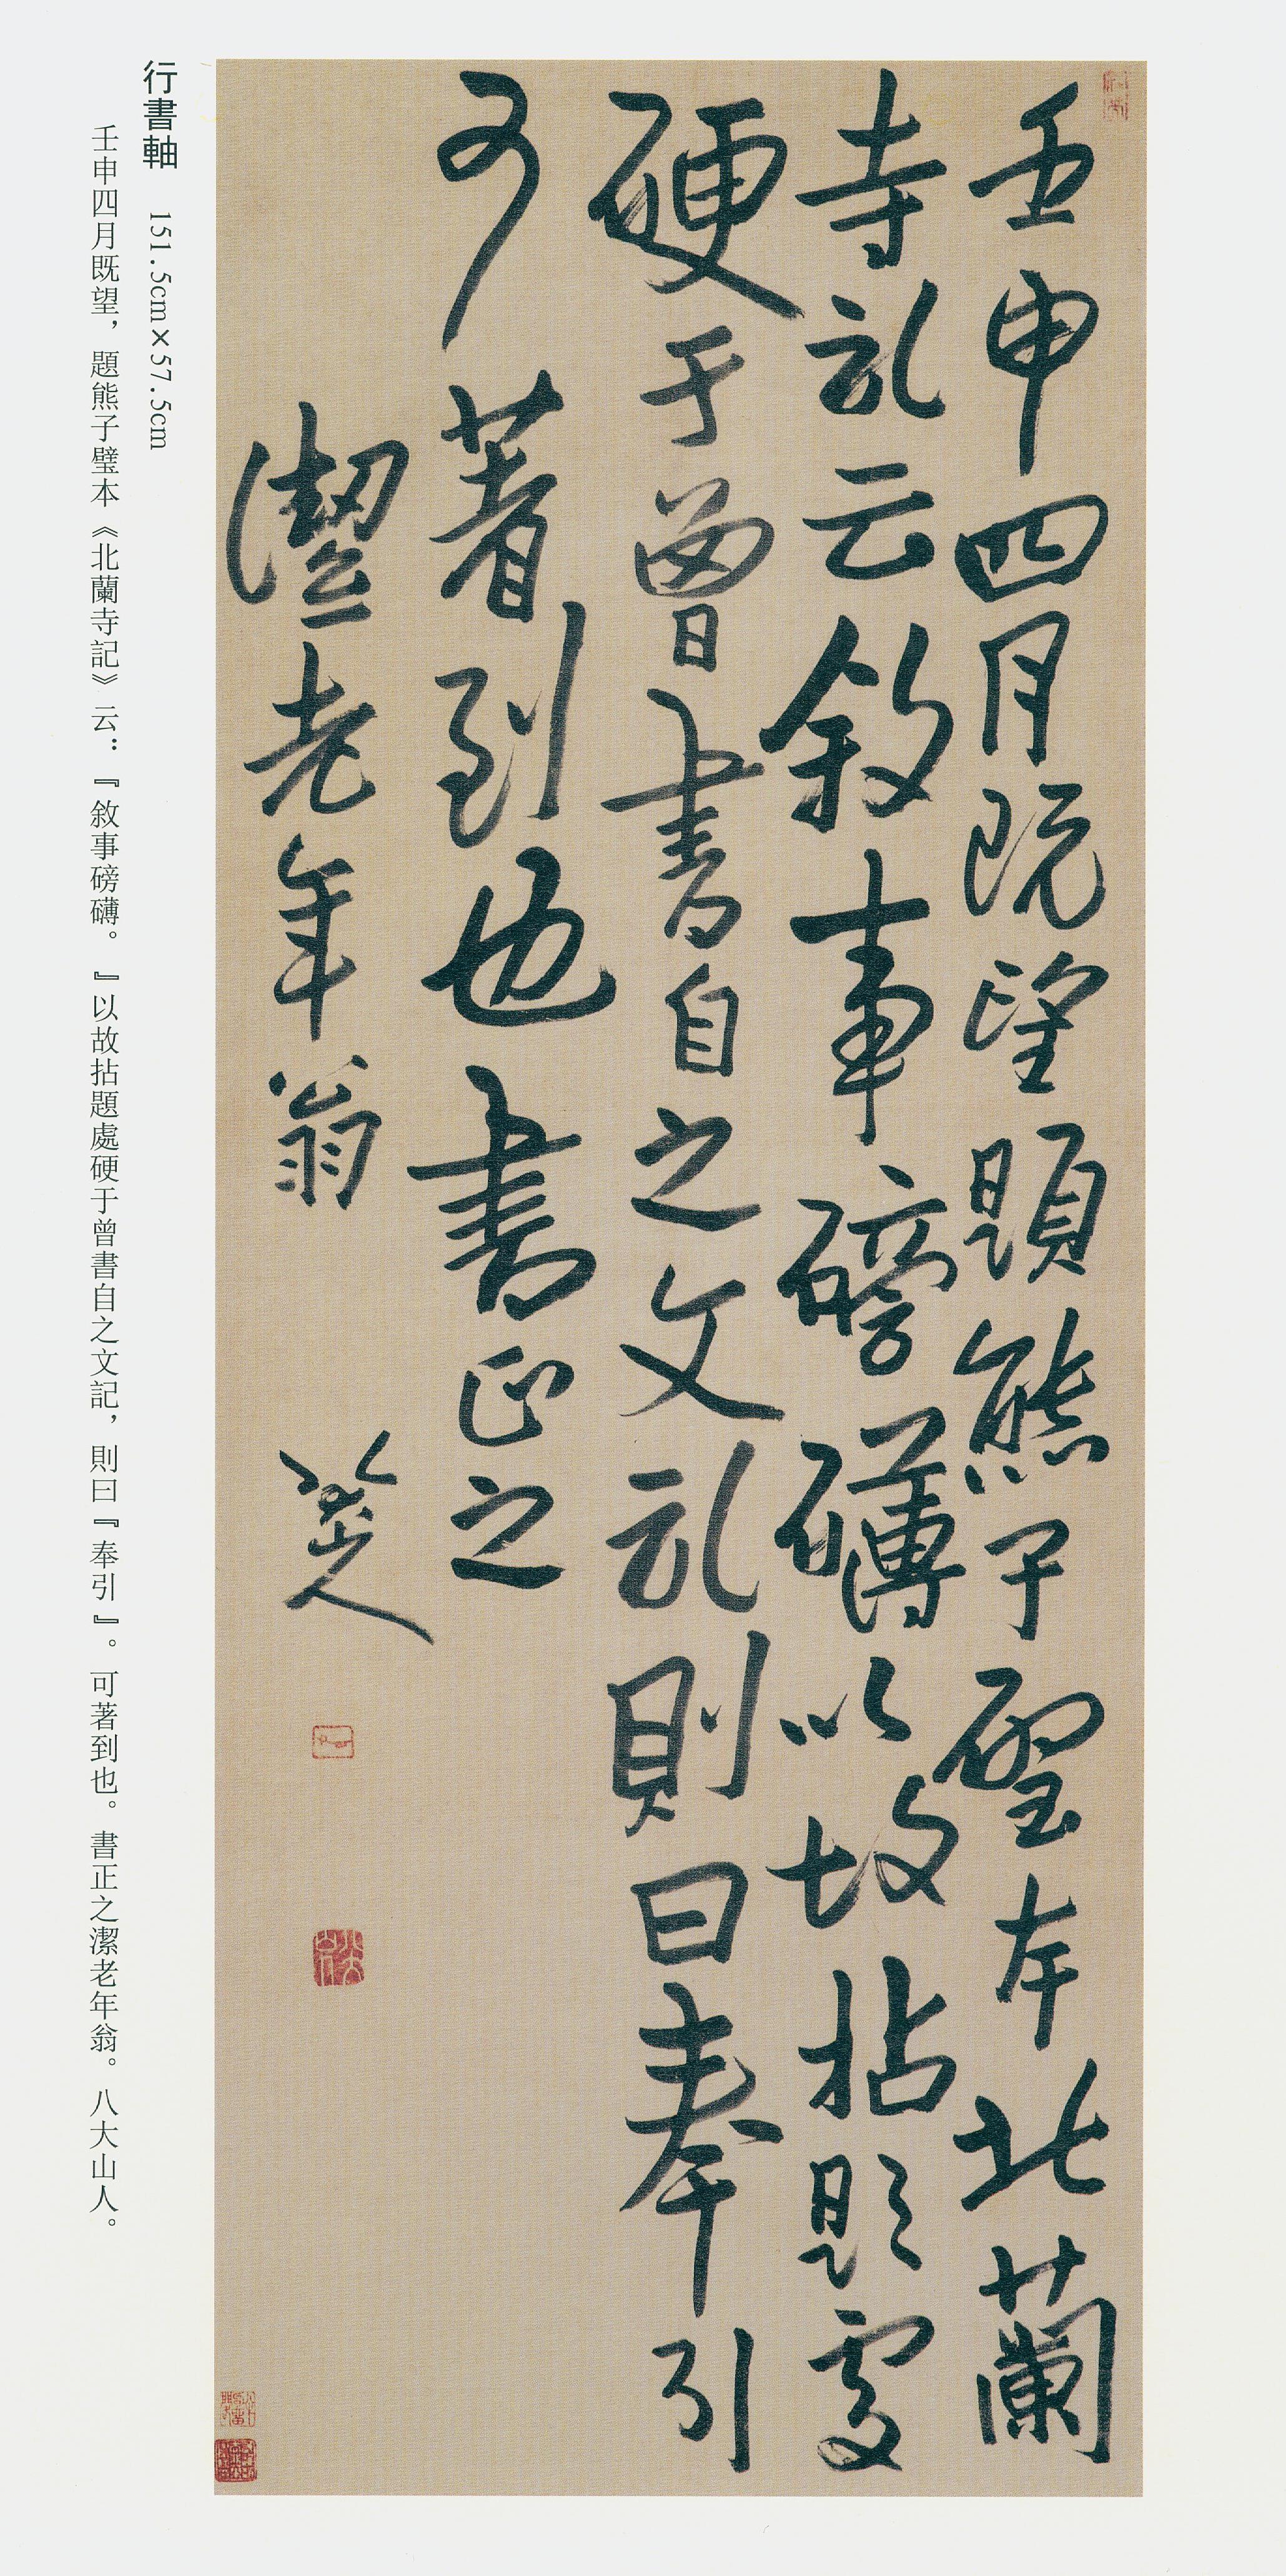 壬申四月既望題熊子璧本北蘭
寺記云敘事磅礴以故拈題處
硬于曾書自之文記則曰奉引
可著到也書正之
潔老年翁
八大山人
行書軸 151.5cm×57.5cm
壬申四月既望，題熊子璧本《北蘭寺記》云：『敘事磅礴。』以故拈題處硬于曾書自之文記，則曰『奉引』。可著到也。書正之潔老年翁。八大山人。